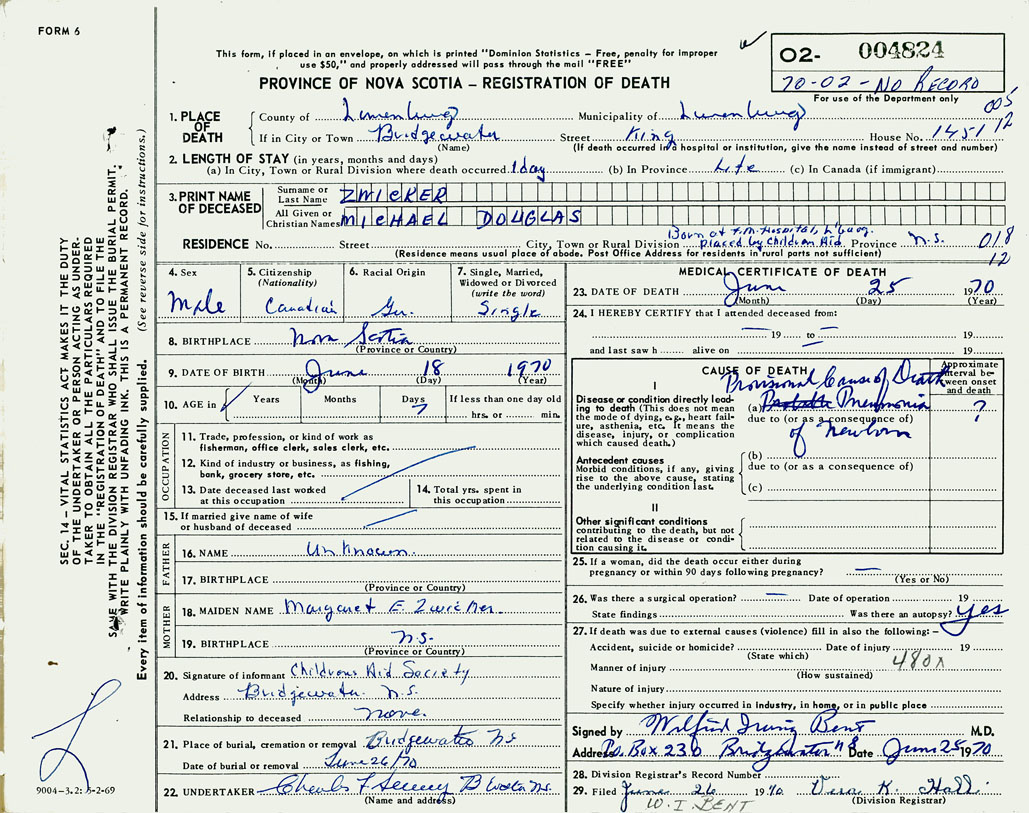 FORM 6
This form, if placed in an envelope, on which is printed "Dominion Statistics – Free, penalty for improper
use $50," and properly addressed will pass through the mail "FREE"
O2- 004824
70-02-NO RECORD
For use of the Department only
PROVINCE OF NOVA SCOTIA – REGISTRATION OF DEATH
005
12
1. PLACE OF DEATH
County of Lunenburg Municipality of Lunenburg
If in City or Town Bridgewater Street King House No. 1451
(Name) (If death occurred in a hospital or institution, give the name instead of street and number)
2. LENGTH OF STAY (in years, months and days)
(a) In City, Town or Rural Division where death occurred 1 day (b) In Province Life (c) In Canada (if immigrant)
3. PRINT NAME OF DECEASED
Surname or Last Name ZWICKER
All Given or Christian Names MICHAEL DOUGLAS
Born at F.M. Hospital, L'burg.
RESIDENCE No. Street City, Town or Rural Division placed by Children Aid Province N.S. 018
(Residence means usual place of abode. Post Office Address for residents in rural parts not sufficient) 12
4. Sex
Male
5. Citizenship
(Nationality)
Canadian
6. Racial Origin
Ger.
7. Single, Married,
Widowed or Divorced
(write the word)
Single
8. BIRTHPLACE Nova Scotia
(Province or Country)
9. DATE OF BIRTH June 18 1970
(Month) (Day) (Year)
10. AGE in
Years Months Days If less than one day old
7 hrs. or min.
OCCUPATION
11. Trade, profession, or kind of work as
fisherman, office clerk, sales clerk, etc.
12. Kind of industry or business, as fishing,
bank, grocery store, etc.
13. Date deceased last worked
at this occupation
14. Total yrs. spent in
this occupation
15. If married give name of wife
or husband of deceased
FATHER
16. NAME Unknown.
17. BIRTHPLACE
(Province or Country)
MOTHER
18. MAIDEN NAME Margaret E. Zwicker
19. BIRTHPLACE N.S.
(Province or Country)
20. Signature of informant Childrens Aid Society
Address Bridgewater N.S.
Relationship to deceased None.
21. Place of burial, cremation or removal Bridgewater NS
Date of burial or removal June 26/70
22. UNDERTAKER Charles F
(Name and address)
MEDICAL CERTIFICATE OF DEATH
23. DATE OF DEATH June 25 1970
(Month) (Day) (Year)
24. I HEREBY CERTIFY that I attended deceased from:
19 to 19
and last saw h alive on 19
CAUSE OF DEATH
Approximate
interval be-
tween onset
and death
Provisional Cause of Death
I
Disease or condition directly lead-
ing to death (This does not
mean the mode of dying, e.g., heart fail-
ure, asthenia, etc. It means the
disease, injury, or complication
which caused death.)
(a) Probable Pneumonia ?
due to (or as a consequence of)
of Newborn
Antecedent causes
Morbid conditions, if any, giving
rise to the above cause, stating
the underlying condition last.
(b)
due to (or as a consequence of)
(c)
II
Other significant conditions
contributing to the death, but not
related to the disease or condi-
tion causing it.
25. If a woman, did the death occur either during
pregnancy or within 90 days following pregnancy?
(Yes or No)
26. Was there a surgical operation? Date of operation 19
State findings Was there an autopsy? yes
27. If death was due to external causes (violence) fill in also the following:–
Accident, suicide or homicide? Date of injury 19
(State which)
480x
Manner of injury
(How sustained)
Nature of injury
Specify whether injury occurred in industry, in home, or in public place
Signed by Wilfrid Irving Bent M.D.
Address P.O. Box 236 Bridgewater NS Date June 25 1970
28. Division Registrar's Record Number
29. Filed June 26 1970 Vera K. Hall
(Division Registrar)
W. I. BENT
SEC. 14 – VITAL STATISTICS ACT MAKES IT THE DUTY
OF THE UNDERTAKER OR PERSON ACTING AS UNDER-
TAKER TO OBTAIN ALL THE PARTICULARS REQUIRED
IN THE "REGISTRATION OF DEATH" AND TO FILE THE
SAME WITH THE DIVISION REGISTRAR WHO SHALL ISSUE THE BURIAL PERMIT.
WRITE PLAINLY WITH UNFADING INK. THIS IS A PERMANENT RECORD.
Every item of information should be carefully supplied. (See reverse side for instructions.)
9004-3.2: -2-69